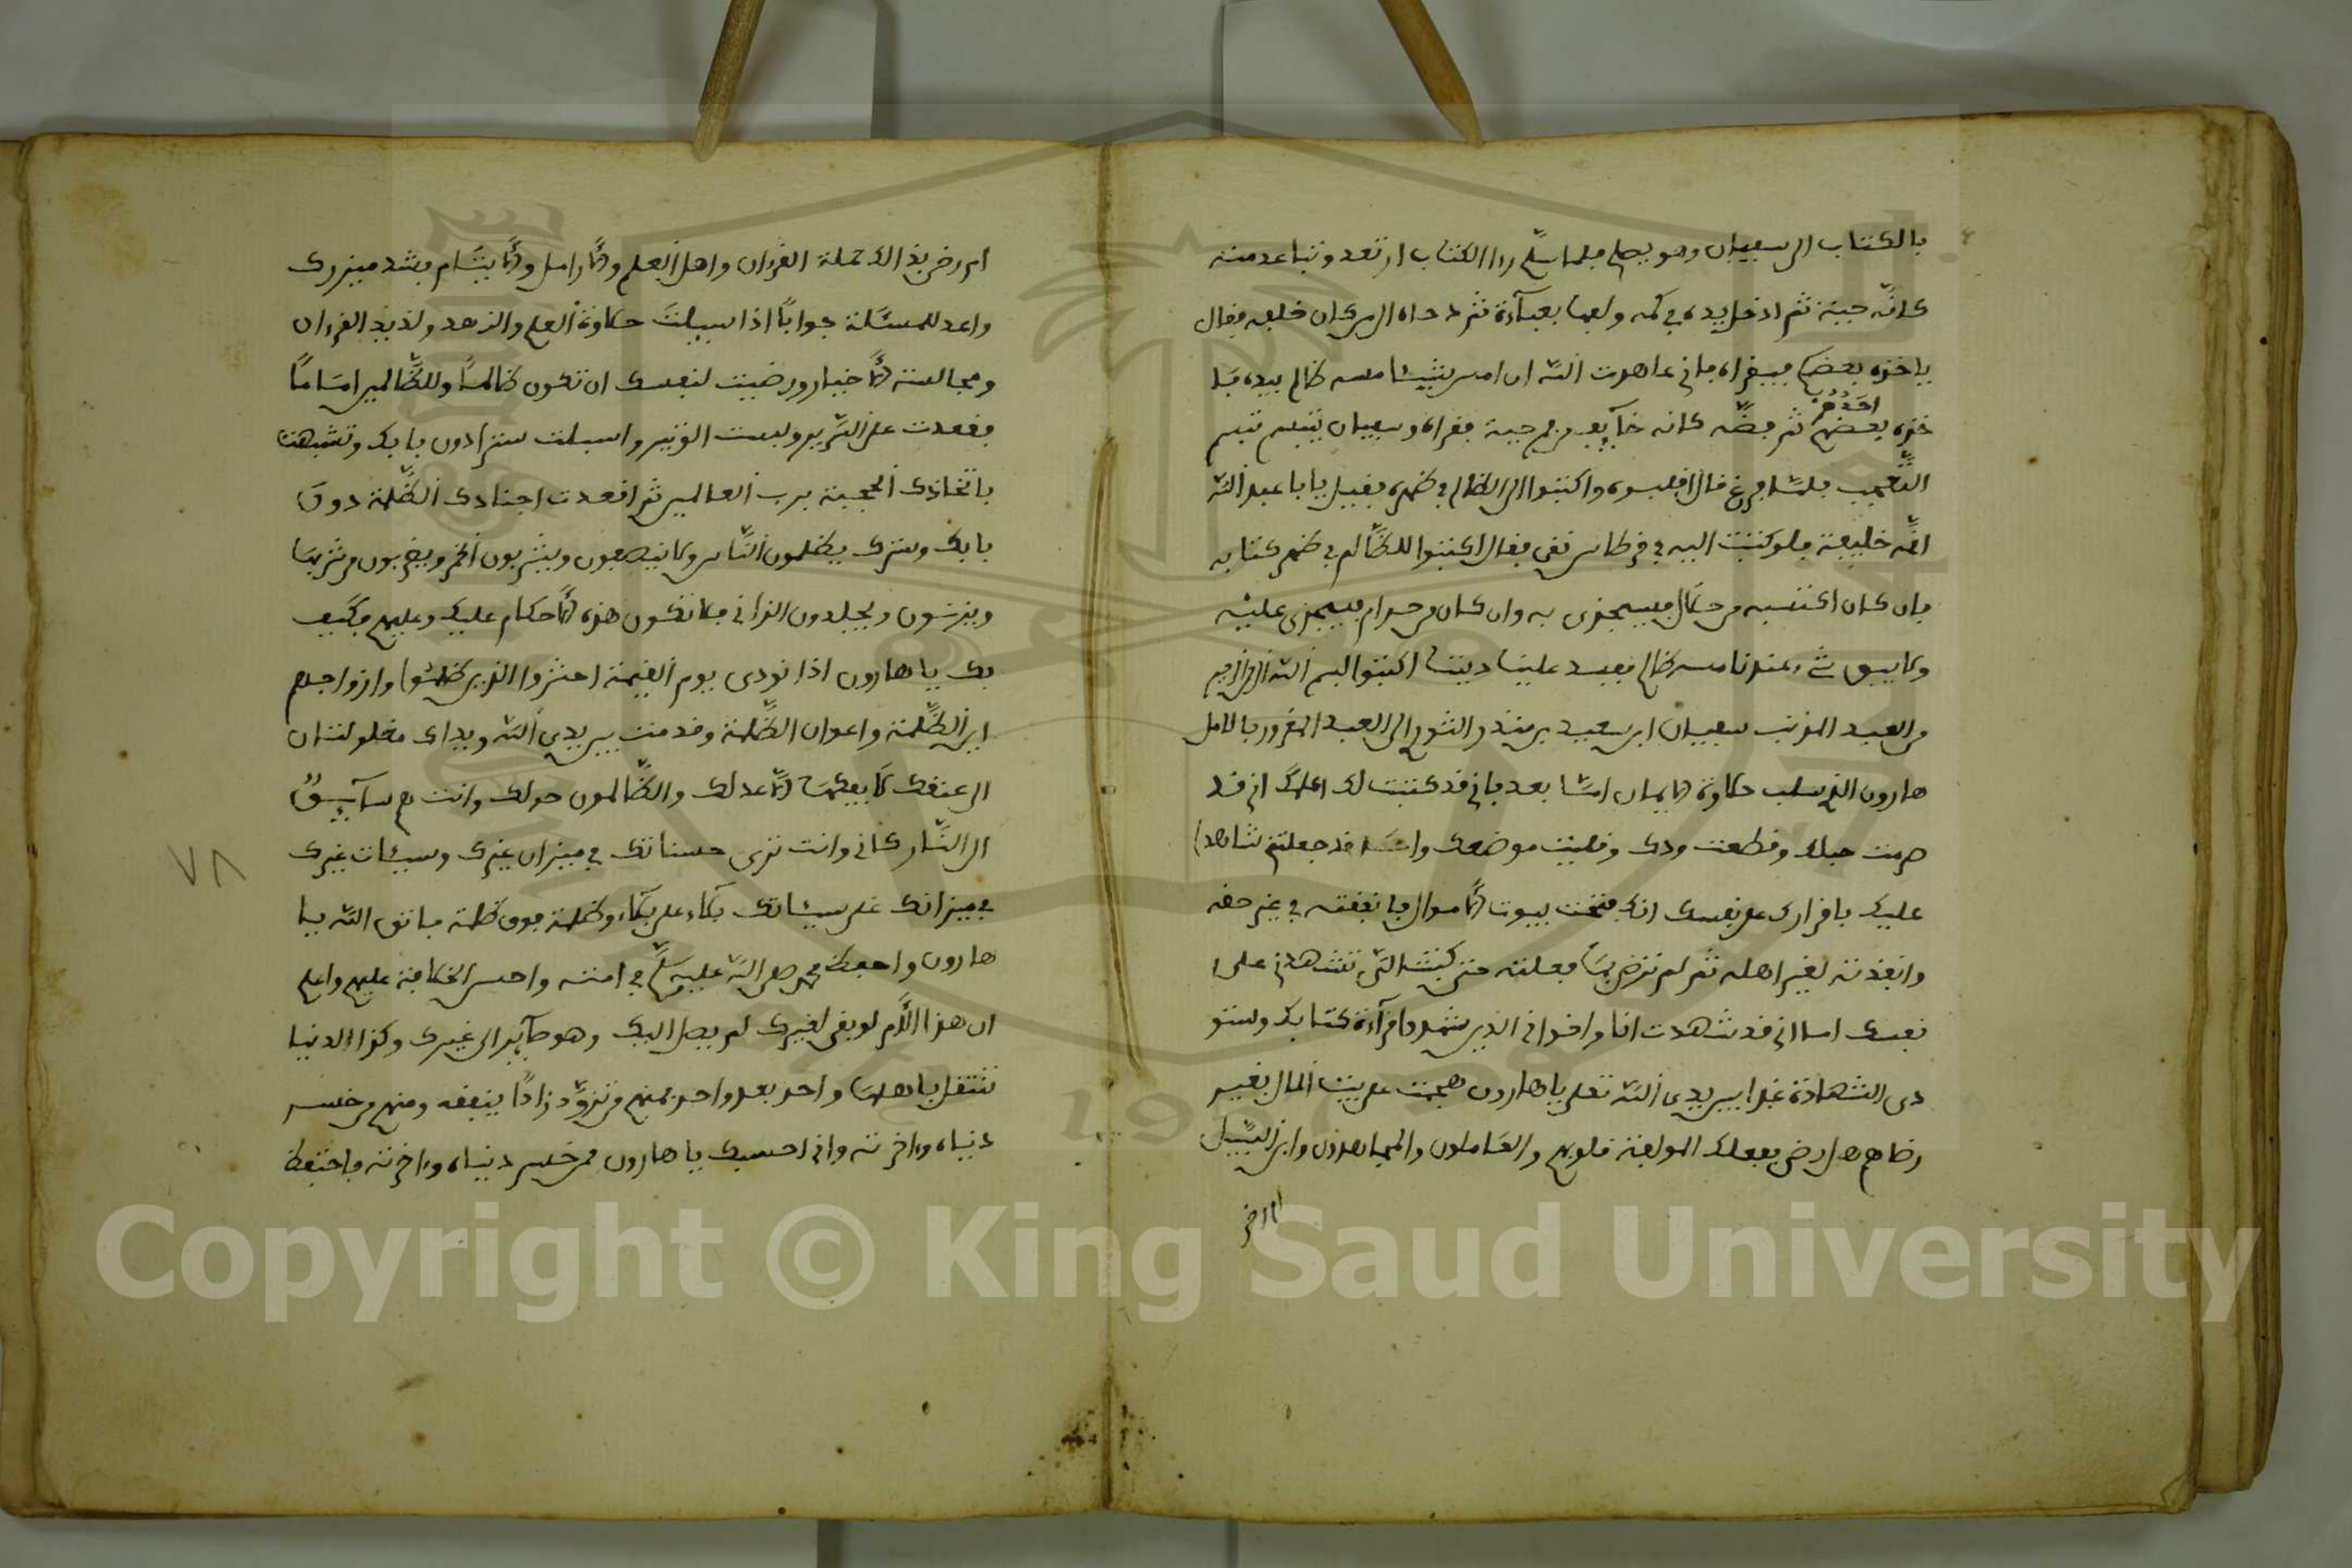 بالكتاب الى سفيان وهو يصلي فلما سلم رءا الكتاب ارتعد وتباعد منه
كانّه حية ثم ادخل يده في كمه ولفها بعباءة ثم دحاه الى من كان خلفه فقال
ياخذه بعضكم فيقراه فاني عاهدت الله ان امس شيئا مسه ظالم بيده فمد
احدهم
خذه بعضهم ثم فضّه كانه خآئف من فم حية فقراه وسفيان يتبسم تبسم
التّعجب فلمّا فرغ قال اقلبوه واكتبوا الى الظالم في ظهره فقيل يابا عبد الله
انّه خليفة فلو كتبت اليه في قرطاس نقي فقال اكتبوا للظّالم في ظهر كتابه
فان كان اكتسبه من حلال فسيجزى به وان كان من حرام فسيجزى عليه
ولا يبقى شيء عندنا مسه ظالم فيفسد علينا ديننا اكتبوا بسم الله الرحمن الرحيم
من العبد المذنب سفيان ابن سعيد بن منذر الثوري الى العبد المغرور بالامل
هارون الذي سلب حلاوة الايمان امّا بعد فاني قد كتبت لك اعلمك اني قد
صرمت حبلك وقطعت ودك وقليت موضعك وانك قد جعلتني شاهدا
عليك باقرارك على نفسك انك فتحت بيوت الاموال فانفقته في غير حقه
وانفذته لغير اهله ثم لم ترض بما فعلته حتى كتبت التي تشهدني على
نفسك اما اني قد شهدت انا واخواني الذين شهدوا قرآءة كتابك وسنو
دي الشهادة غدا بين يدي الله تعلى ياهارون هجمت على بيت المال بغير
رضاهم هل رضي بفعلك المولفة قلوبهم والعاملون والمجاهدون وابن السّبيل
ام رضي
ام رضي بذالك حملة القرءان واهل العلم والارامل والايتام فشد ميزرك
واعد للمسئلة جوابًا اذا سيلت حلاوة العلم والزهد ولذيذ القرءان
ومجالسة الاخيار ورضيت لنفسك ان تكون ظالمًا وللظّالمين امامًا
فقعدت على السّرير ولبست الوثير واسبلت سترا دون بابك وتشبهت
باتخاذك الحجبة برب العالمين ثم اقعدت اجنادك الظّلمة دون
بابك وسترك يظلمون النّاس ولا ينصفون ويشربون الخمر ويضربون من شربها
ويزنون ويجلدون الزاني فلا تكون هذه الاحكام عليك وعليهم فكيف
بك ياهارون اذا نودى يوم القيمة احشروا الذين ظلموا وازواجهم
اين الظّلمة واعوان الظّلمة وقدمت بين يدي الله ويداك مغلولتان
الى عنقك لا يفكهما الا عدلك والظّالمون حولك وانت لهم سآيقٌ
الى النّار كاني وانت ترى حسناتك في ميزان غيرك وسيئات غيرك
في ميزانك على سيئاتك بكاء على بكاء وظلمة فوق ظلمة فاتق الله يا
هارون واحفظ محمد صلى الله عليه وسلم في امته واحسن الخلافة عليهم واعلم
ان هذا الامر لو بقي لغيرك لم يصل اليك وهو صآئر الى غيرك وكذا الدنيا
تنتقل باهلها واحد بعد واحد فمنهم من تزوّد زادًا ينفعه ومنهم من خسر
دنياه وءاخرته واني احسبك ياهارون ممن خسر دنياه وءاخرته فاحتفظ
٧٨
Copyright © King Saud University